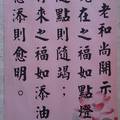 老和尚開示
在之福如點燈
點則隨竭：
來之福如添油
愈添則愈明。